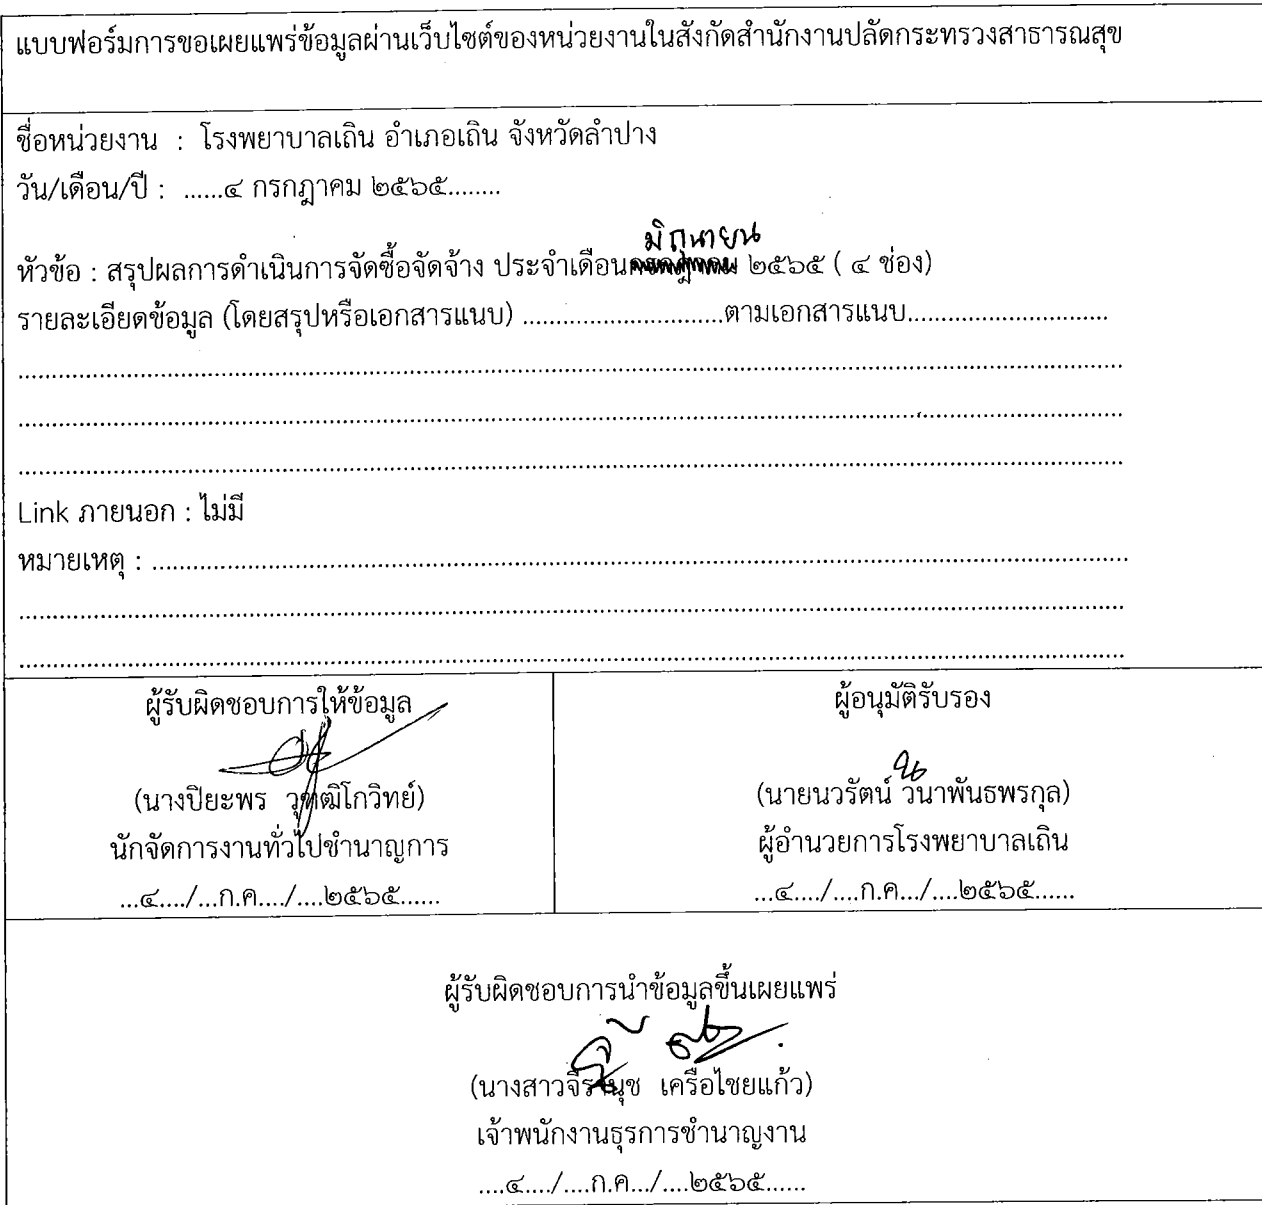 แบบฟอร์มการขอเผยแพร่ข้อมูลผ่านเว็บไซต์ของหน่วยงานในสังกัดสำนักงานปลัดกระทรวงสาธารณสุข
ชื่อหน่วยงาน : โรงพยาบาลเถิน อำเภอเถิน จังหวัดลำปาง
วัน/เดือน/ปี : ......๔ กรกฎาคม ๒๕๖๕........
มิถุนายน
หัวข้อ : สรุปผลการดำเนินการจัดซื้อจัดจ้าง ประจำเดือนกรกฎาคม ๒๕๖๕ ( ๔ ช่อง)
รายละเอียดข้อมูล (โดยสรุปหรือเอกสารแนบ) ..............................ตามเอกสารแนบ..............................
Link ภายนอก : ไม่มี
หมายเหตุ : ....................................................................................
ผู้รับผิดชอบการให้ข้อมูล
(นางปิยะพร วุฑฒิโกวิทย์)
นักจัดการงานทั่วไปชำนาญการ
...๔..../...ก.ค..../....๒๕๖๕......
ผู้อนุมัติรับรอง
(นายนวรัตน์ วนาพันธพรกุล)
ผู้อำนวยการโรงพยาบาลเถิน
...๔..../....ก.ค.../....๒๕๖๕......
ผู้รับผิดชอบการนำข้อมูลขึ้นเผยแพร่
(นางสาวจีรานุช เครือไชยแก้ว)
เจ้าพนักงานธุรการชำนาญงาน
....๔..../....ก.ค.../....๒๕๖๕......